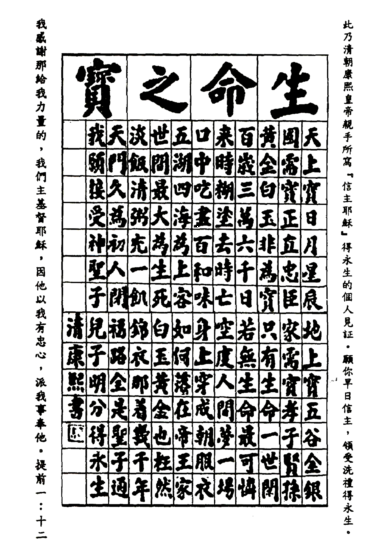 此乃清朝康熙皇帝親手所寫『信主耶穌』得永生的個人見証。願你早日信主,領受洗禮得永生。
生命之寶
天上寶日月星辰地上寶五谷金銀
國需寶正直忠臣家需寶孝子賢孫
黃金白玉非為寶只有生命一世閒
百歲三萬六千日若無生命最可憐
來時糊塗去時亡空度人間夢一場
口中吃盡百和味身上穿成朝服衣
五湖四海為上客如何落在帝王家
世間最大為生死白玉黃金也枉然
淡飯清粥充一飢錦衣那着幾千年
天門久為初人閉福路全是聖子通
我願接受神聖子兒子明分得永生
清康熙書
我感謝那給我力量的,我們主基督耶穌,因他以我有忠心,派我事奉他。提前一:十二